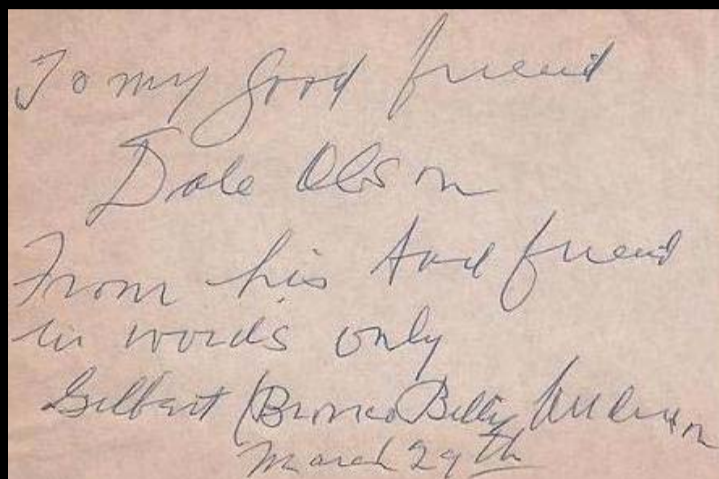 To my good friend
Dale Olson
From his friend
in words only
Gilbert (Bronco Billy Anderson
March 29th